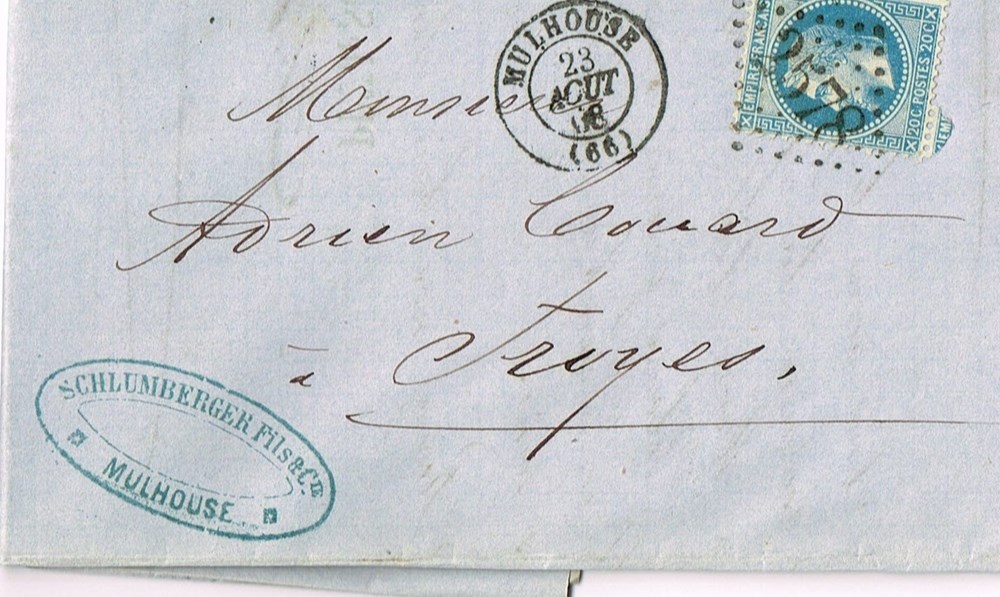 MULHOUSE
23
AOUT
68
(66)
EMPIRE FRANCAIS
20 C. POSTES 20 C.
2578
Monsieur
Adrien Couard
à Troyes,
SCHLUMBERGER Fils & Cie
MULHOUSE